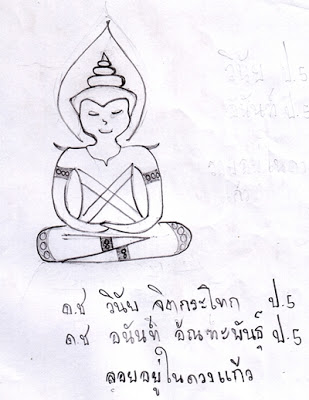 วินัย ป.5
ด.ช วินัย จิตกระโทก ป.5
ด.ช อนันท์ อัณฑะพันธุ์ ป.5
ลอยอยู่ในดวงแก้ว